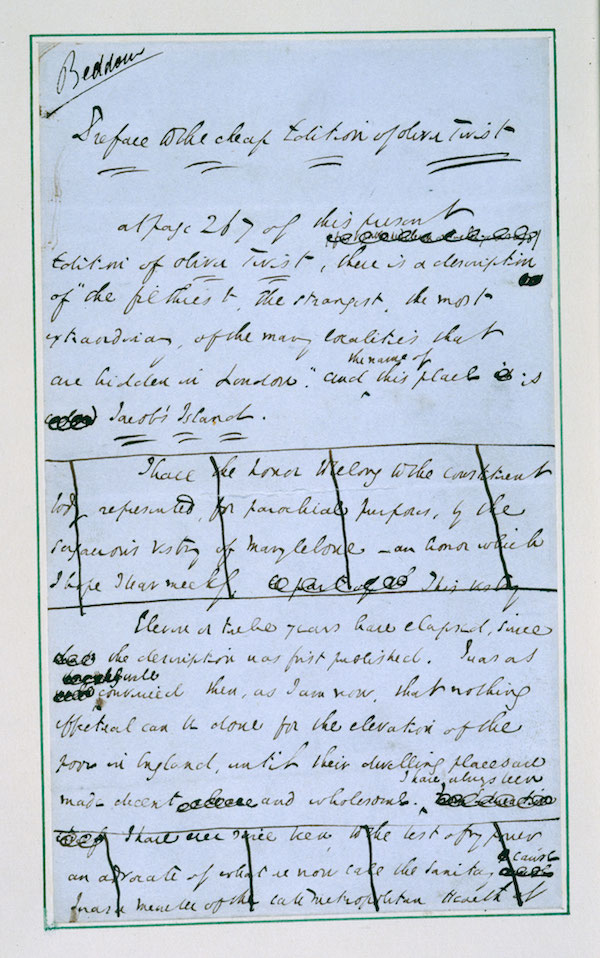 Beddow
Preface to the cheap Edition of Oliver Twist
At page 267 of this present
Edition of Oliver Twist, there is a description
of "the filthiest, the strangest, the most
extraordinary, of the many localities that
are hidden in London." And the name of this place is
Jacob's Island.
I have the honor to belong to the constituent
body represented, for parochial purposes, by the
sagacious vestry of Marylebone — an honor which
I hope I bear meekly. This vestry
Eleven or twelve years have elapsed, since
the description was first published. I was as
convinced then, as I am now, that nothing
effectual can be done for the elevation of the
poor in England, until their dwelling places are
made decent and wholesome. I have always been
I have ever since been to the best of my power
an advocate of what we now call the sanitary cause
I was a member of the late Metropolitan Health of